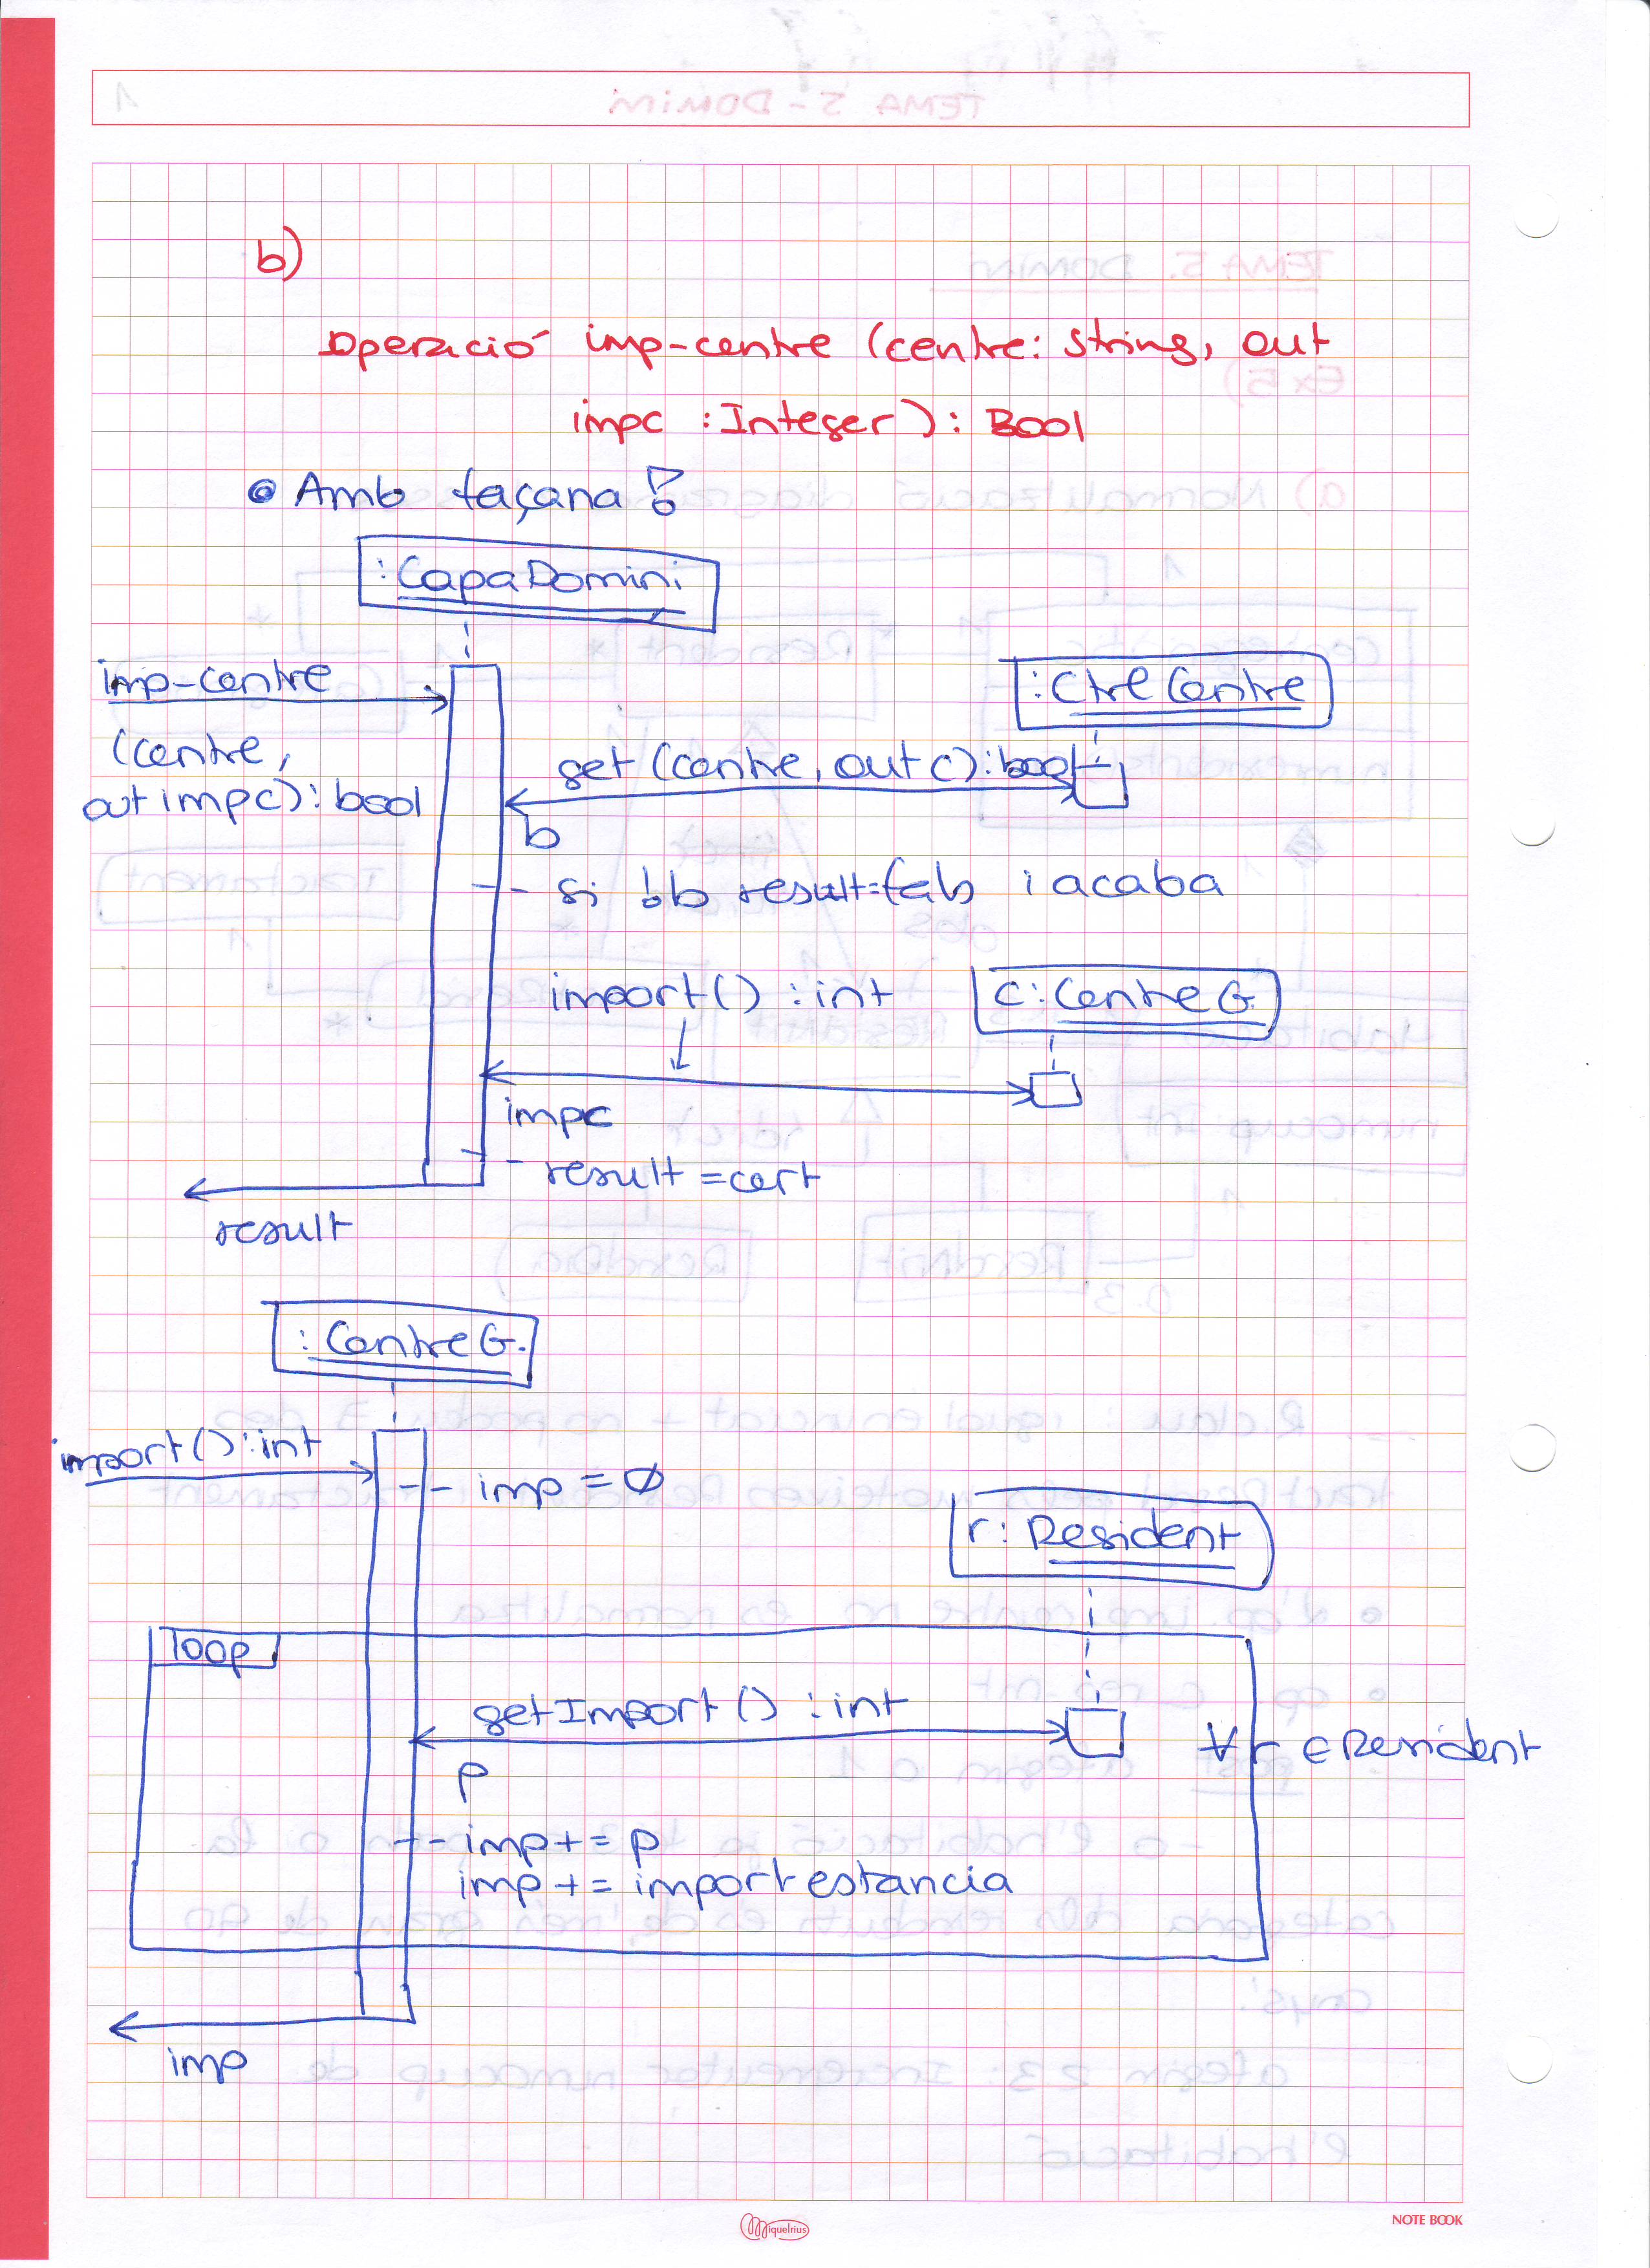 b)
Operació imp-centre (centre: String, out
impc : Integer): Bool
Amb façana!
:CapaDomini
imp-centre
(centre,
out impc): bool
:CtrlCentre
get (centre, out c): bool
b
si !b result=fals i acaba
import() : int
c: CentreG.
impc
result = cert
result
:CentreG.
import():int
imp = Ø
r: Resident
loop
getImport() : int
∀r ∈ Resident
p
imp += p
imp += importestancia
imp
Miquelrius
NOTE BOOK